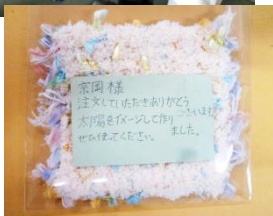 京岡様
注文していただきありがとうございます
太陽をイメージして作りました。
ぜひ使ってください。